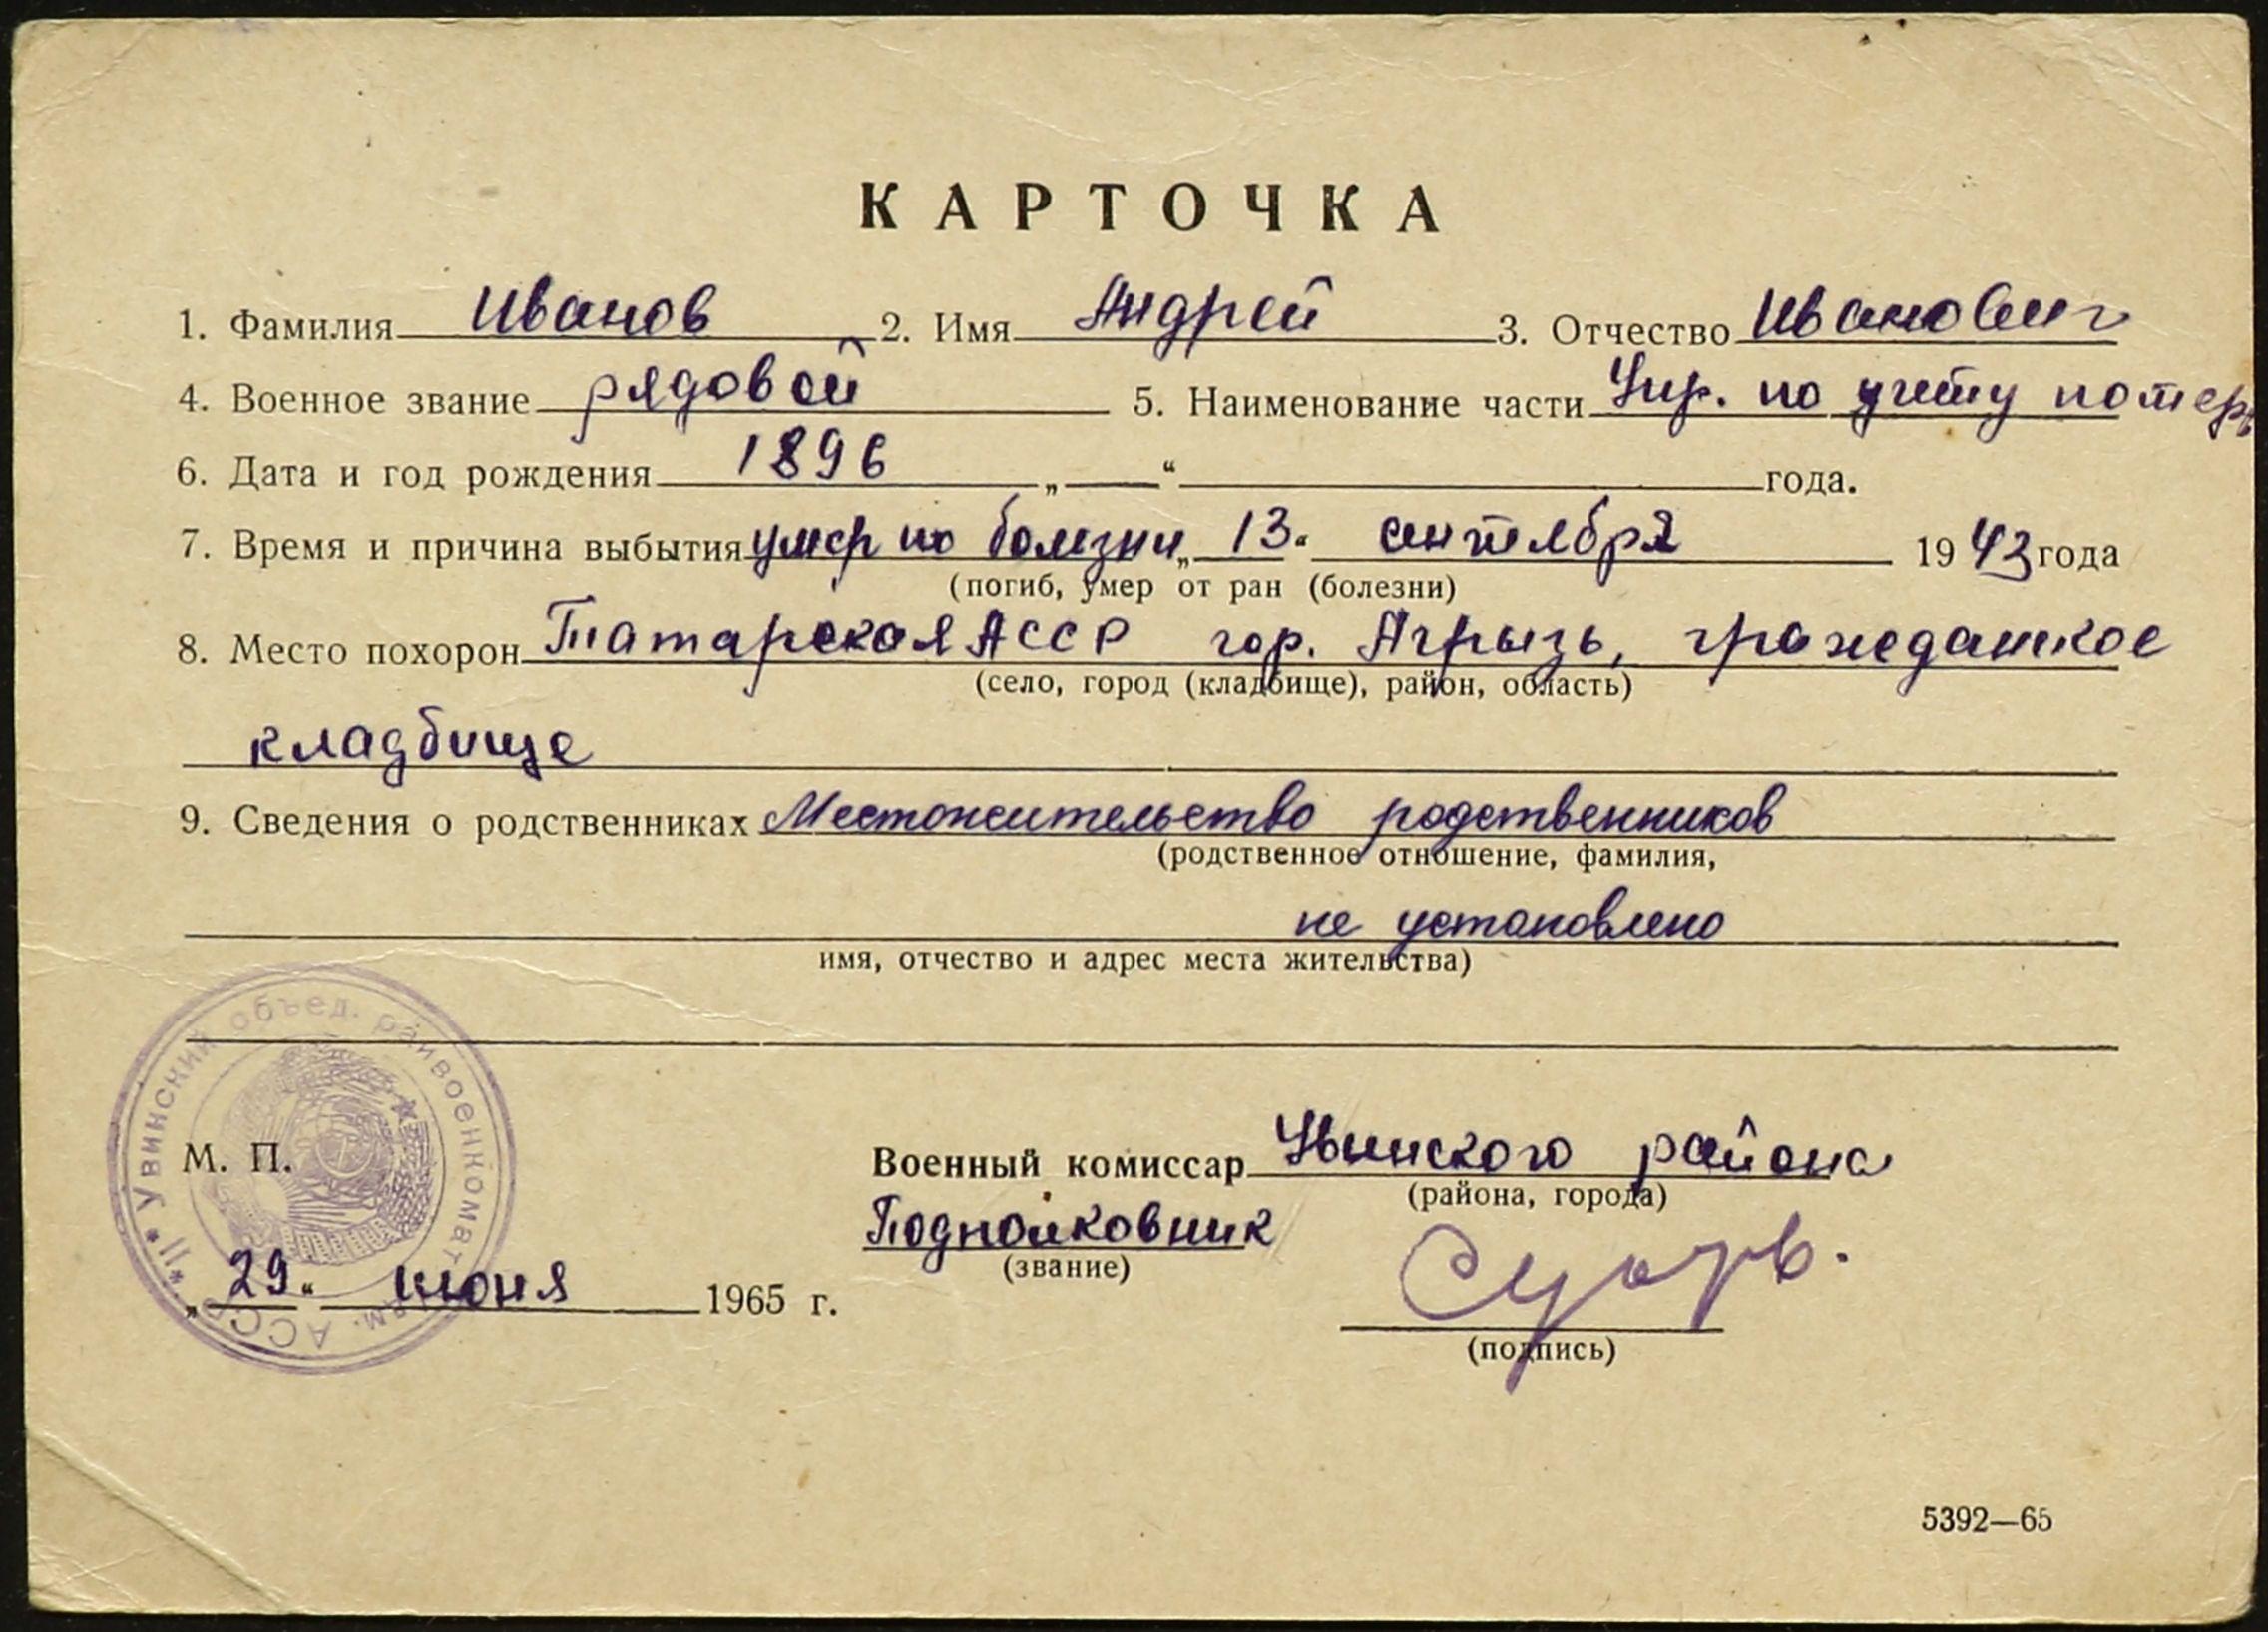 КАРТОЧКА
1. Фамилия Иванов 2. Имя Андрей 3. Отчество Иванович
4. Военное звание рядовой 5. Наименование части Упр. по учету потерь
6. Дата и год рождения 1896 „ “ года.
7. Время и причина выбытия умер по болезни „ 13 “ сентября 1943 года
(погиб, умер от ран (болезни)
8. Место похорон Татарская АССР гор. Агрызь, гражданкое
(село, город (кладбище), район, область)
кладбище
9. Сведения о родственниках Местожительство родственников
(родственное отношение, фамилия,
не установлено
имя, отчество и адрес места жительства)
Увинский объед. райвоенкомат Удм. АССР *II*
М. П.
Военный комиссар Увинского района
(района, города)
Подполковник
(звание)
„ 29 “ июня 1965 г.
(подпись)
5392—65